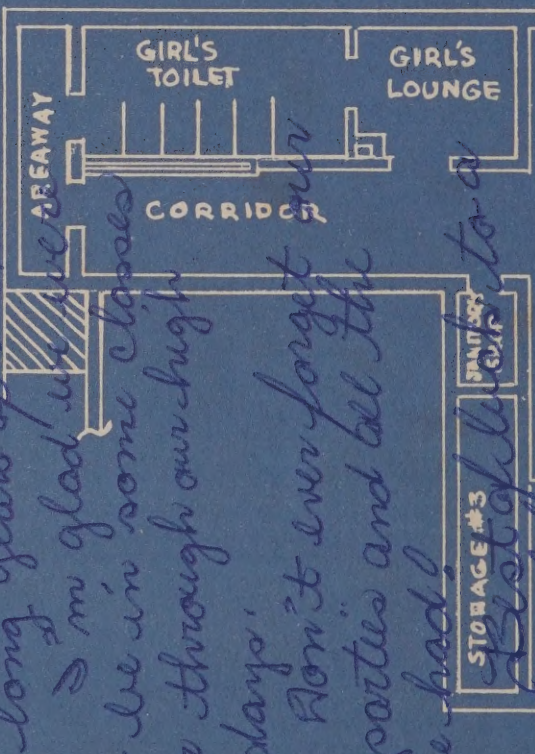 GIRL'S
TOILET
GIRL'S
LOUNGE
AREAWAY
CORRIDOR
JANITOR'S
STORAGE #3
long years
I'm glad we were
be in some classes
through our high
days.
Don't ever forget our
and all the
had!
Best of luck to a